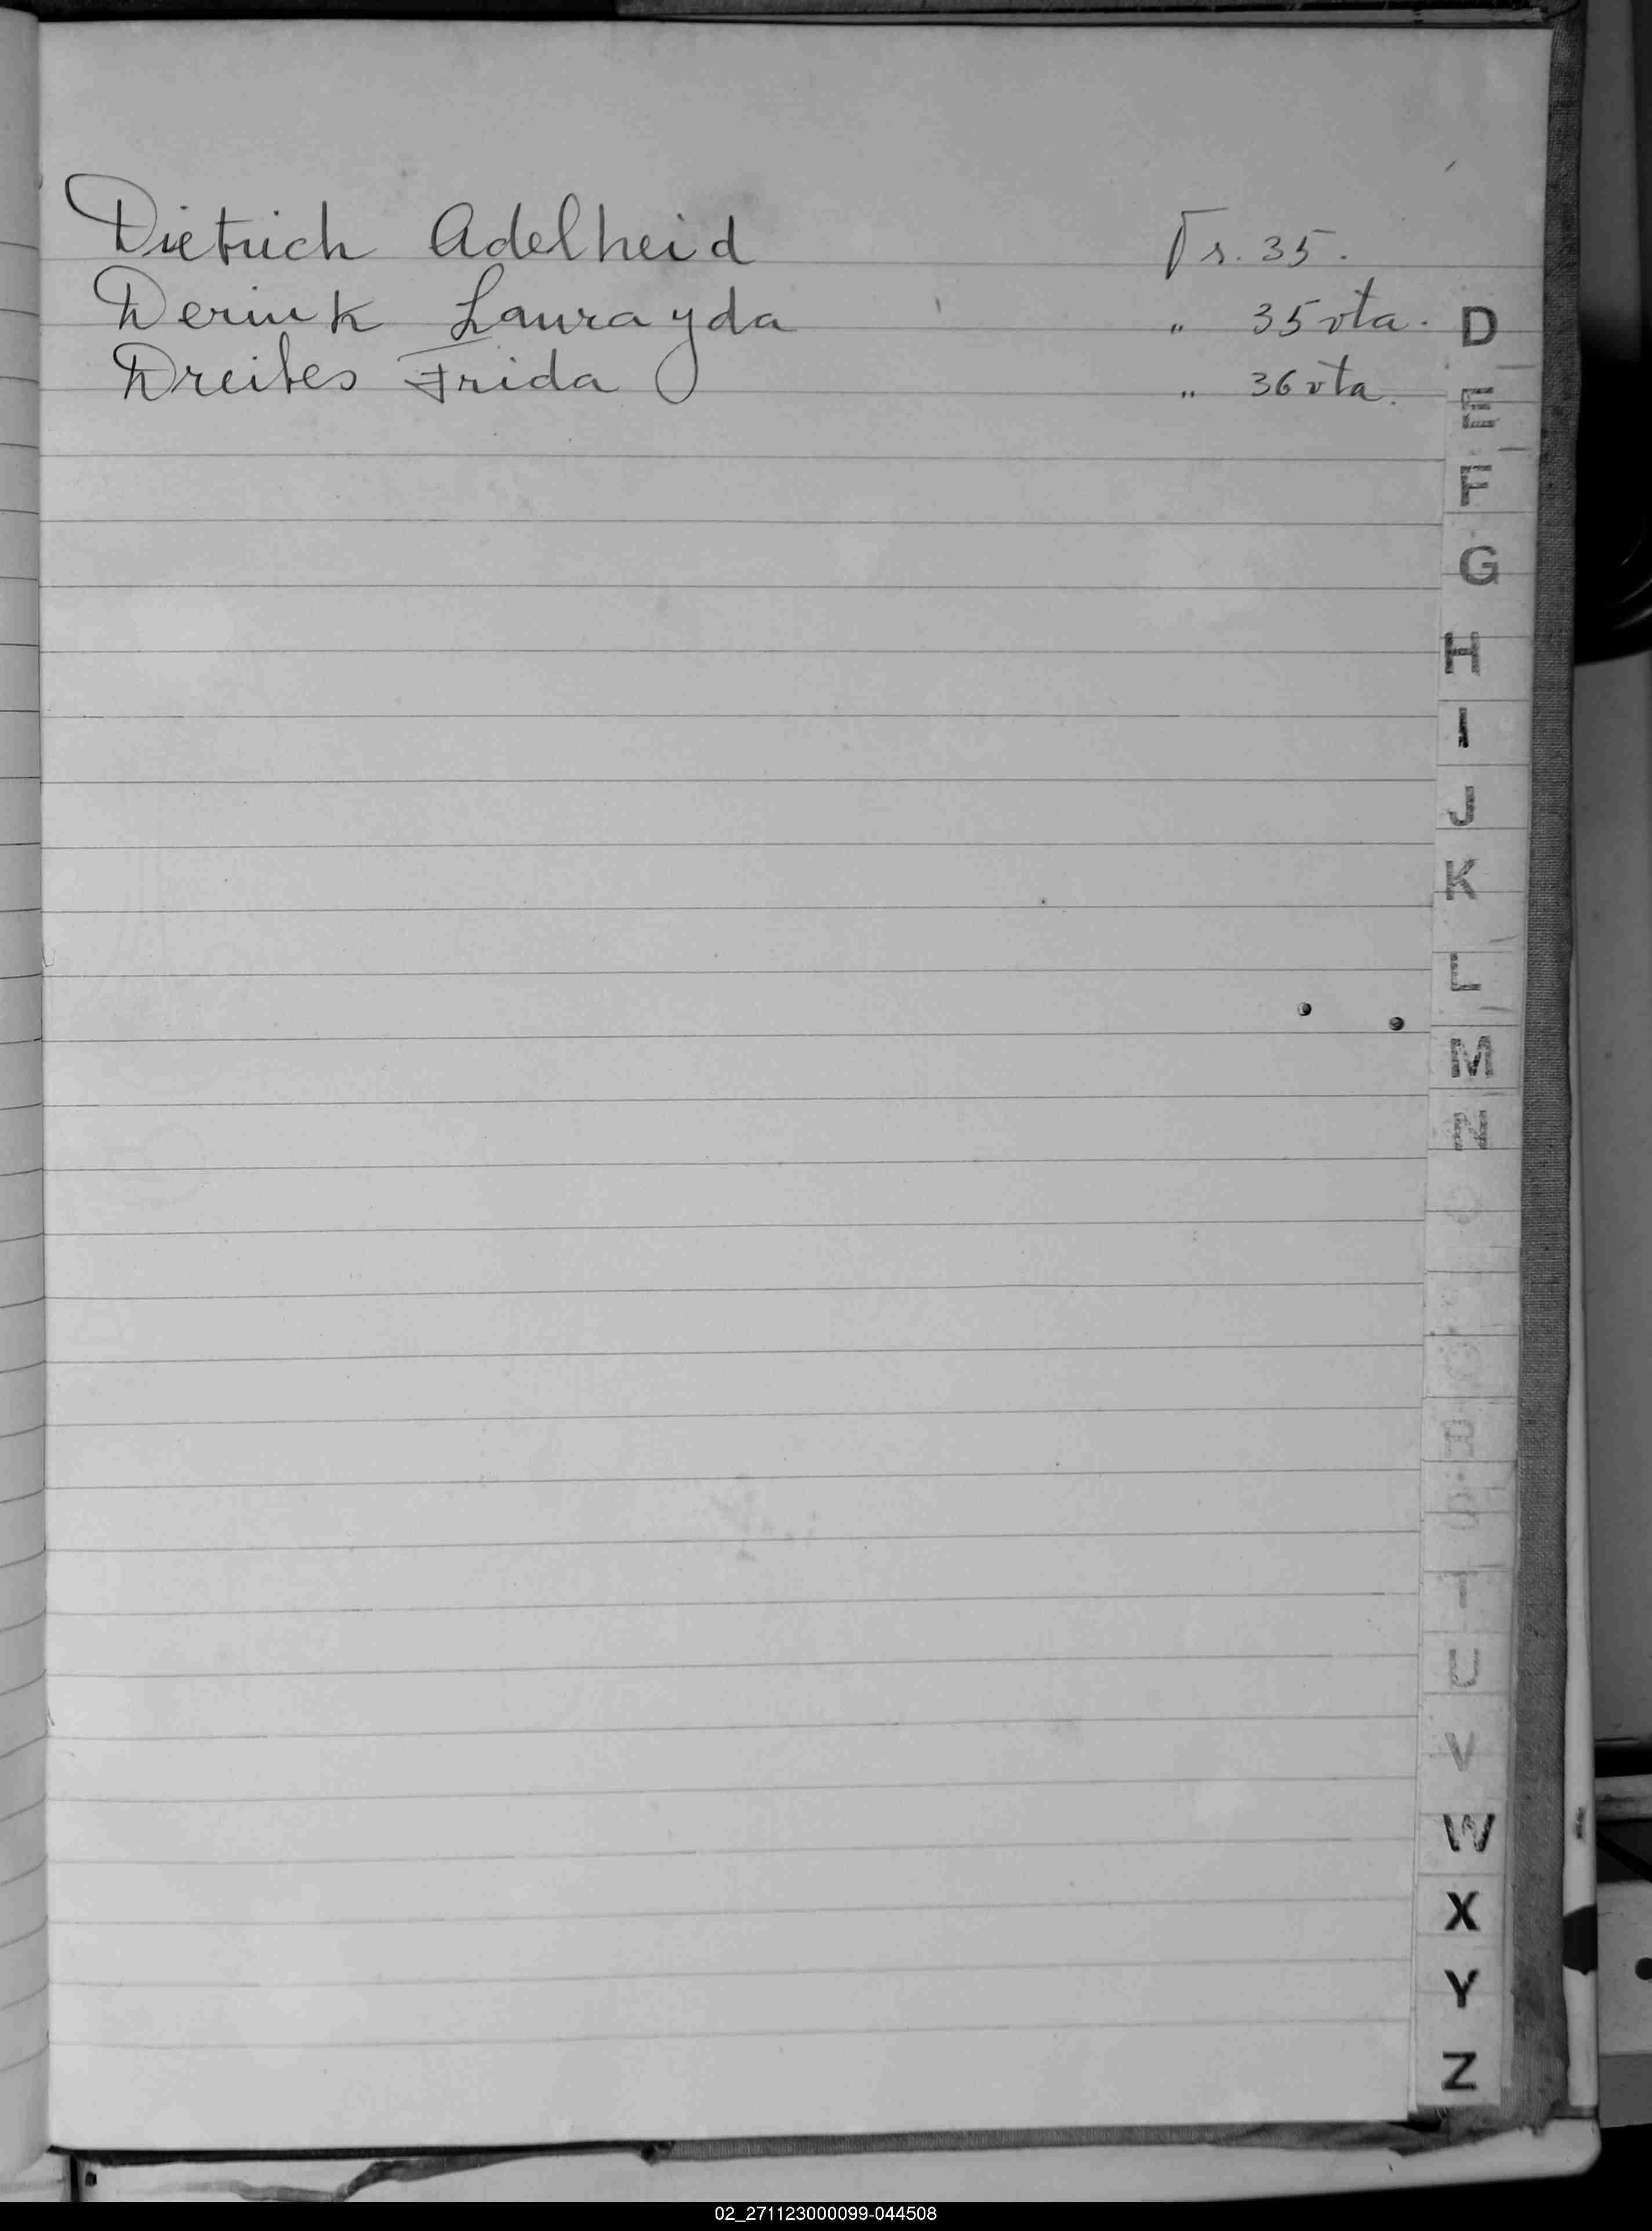 Dietrich Adelheid Fs. 35.
Derink Laurayda " 35 vta.
Dreibes Frida " 36 vta.
D
E
F
G
H
I
J
K
L
M
N
R
S
T
U
V
W
X
Y
Z
02_271123000099-044508